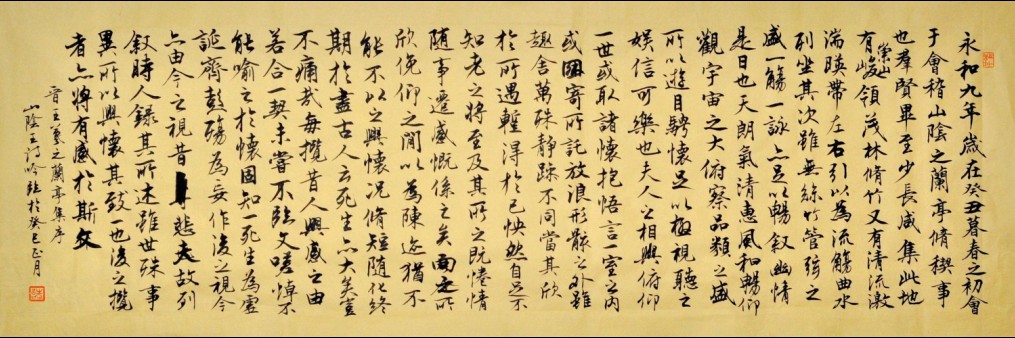 永和九年歲在癸丑暮春之初會
于會稽山陰之蘭亭脩稧事
也羣賢畢至少長咸集此地
有崇山峻領茂林脩竹又有清流激
湍暎帶左右引以為流觴曲水
列坐其次雖無絲竹管弦之
盛一觴一詠亦足以暢敘幽情
是日也天朗氣清惠風和暢仰
觀宇宙之大俯察品類之盛
所以遊目騁懷足以極視聽之
娛信可樂也夫人之相與俯仰
一世或取諸懷抱悟言一室之內
或因寄所託放浪形骸之外雖
趣舍萬殊靜躁不同當其欣
於所遇蹔得於己怏然自足不
知老之將至及其所之既惓情
隨事遷感慨係之矣向之所
欣俛仰之間以為陳迹猶不
能不以之興懷況脩短隨化終
期於盡古人云死生亦大矣豈
不痛哉每攬昔人興感之由
若合一契未嘗不臨文嗟悼不
能喻之於懷固知一死生為虛
誕齊彭殤為妄作後之視今
亦由今之視昔悲夫故列
敘時人錄其所述雖世殊事
異所以興懷其致一也後之攬
者亦將有感於斯文
晉王羲之蘭亭集序
山陰 於癸巳正月